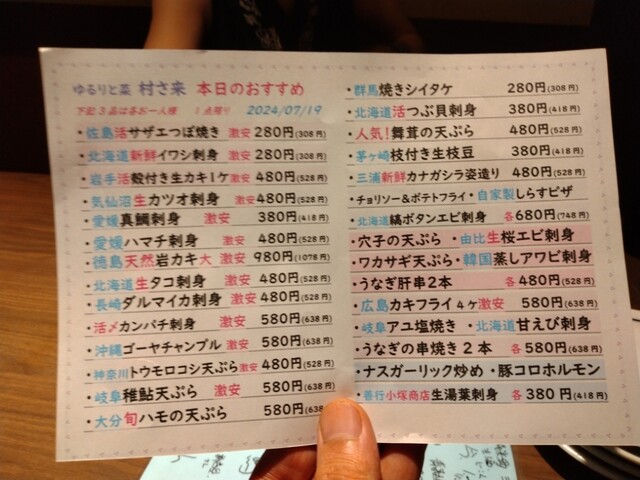 ゆるりと菜 村さ来 本日のおすすめ
下記3品は各お一人様 1点限り 2024/07/19
・佐島活サザエつぼ焼き 激安280円(308円)
・北海道新鮮イワシ刺身 激安280円(308円)
・岩手活殻付き生カキ1ケ激安480円(528円)
・気仙沼生カツオ刺身 激安480円(528円)
・愛媛真鯛刺身 激安 380円(418円)
・愛媛ハマチ刺身 激安 480円(528円)
・徳島天然岩カキ大 激安 980円(1078円)
・北海道生タコ刺身 激安480円(528円)
・長崎ダルマイカ刺身 激安480円(528円)
・活〆カンパチ刺身 激安 580円(638円)
・沖縄ゴーヤチャンプル 激安 580円(638円)
・神奈川トウモロコシ天ぷら激安480円(528円)
・岐阜稚鮎天ぷら 激安 580円(638円)
・大分旬ハモの天ぷら 580円(638
・群馬焼きシイタケ 280円(308円)
・北海道活つぶ貝刺身 380円(418円)
・人気!舞茸の天ぷら 480円(528円)
・茅ヶ崎枝付き生枝豆 380円(418円)
・三浦新鮮カナガシラ姿造り 480円(528円)
・チョリソー&ポテトフライ・自家製しらすピザ
・北海道縞ボタンエビ刺身 各680円(748円)
・穴子の天ぷら ・由比生桜エビ刺身
・ワカサギ天ぷら・韓国蒸しアワビ刺身
・うなぎ肝串2本 各480円(528円)
・広島カキフライ4ヶ激安 580円(638円)
・岐阜アユ塩焼き ・北海道甘えび刺身
・うなぎの串焼き2本 各580円(638円)
・ナスガーリック炒め ・豚コロホルモン
・善行小塚商店生湯葉刺身 各380円(418円)